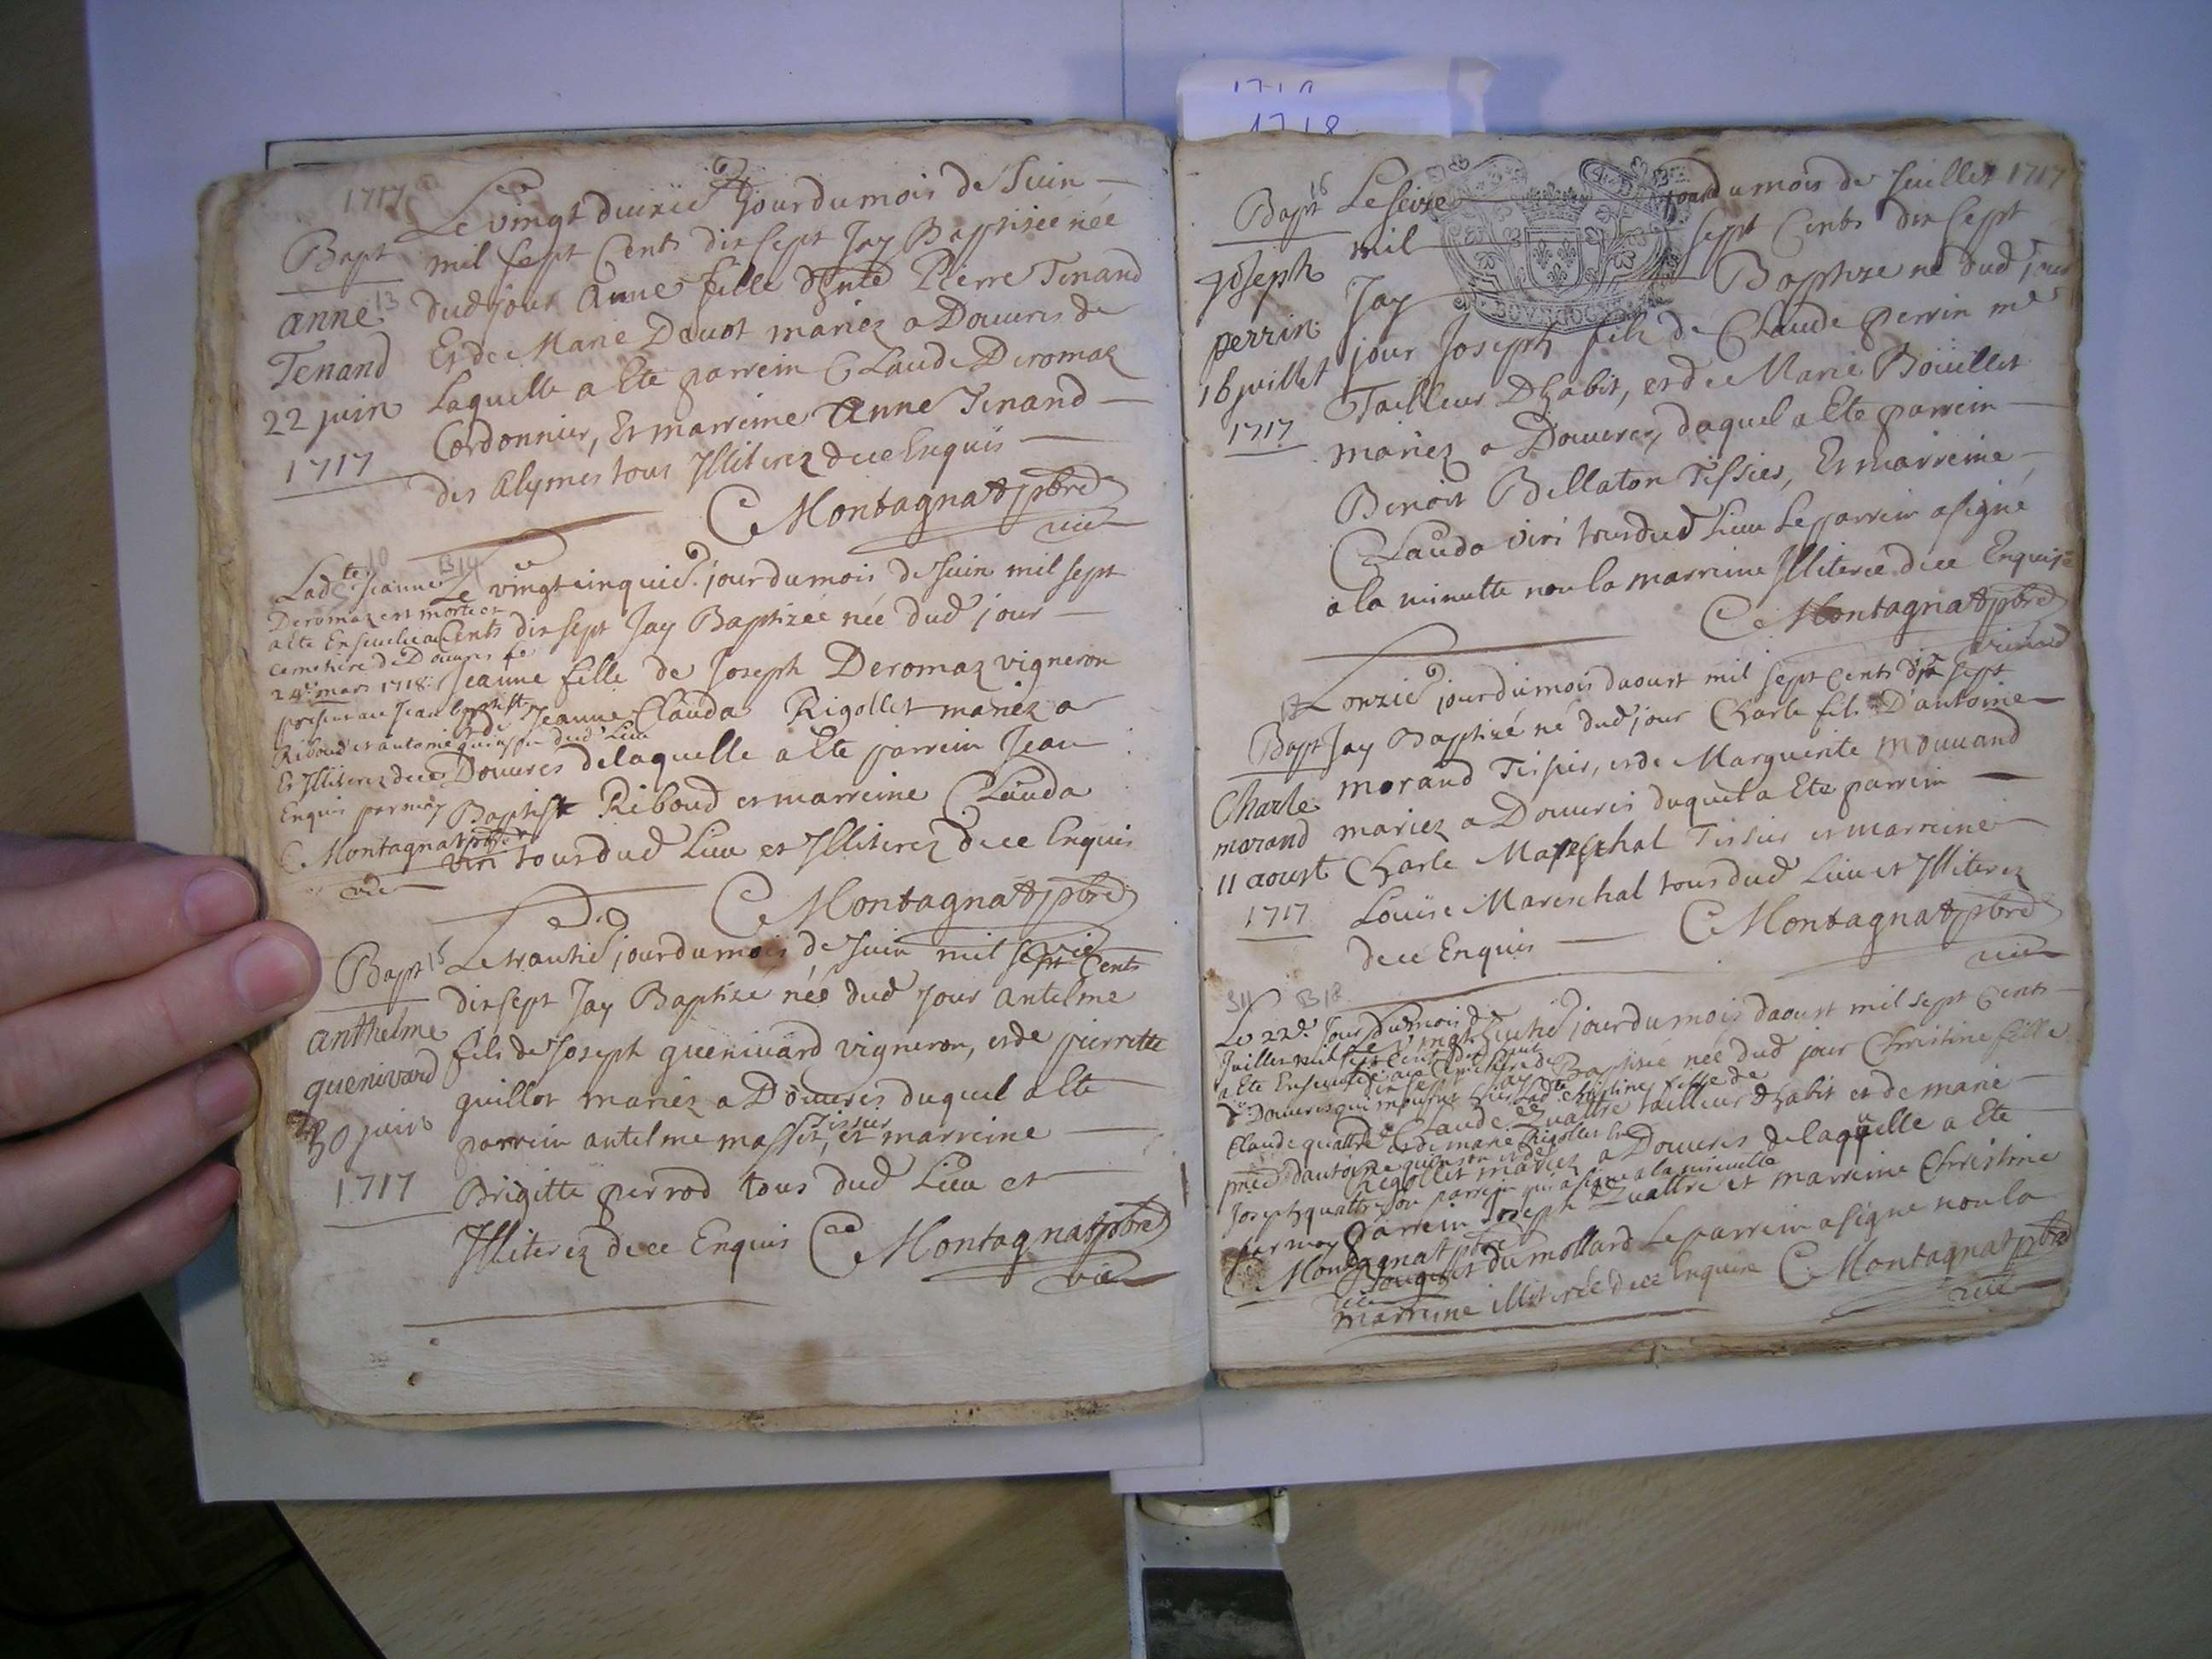 1717
Le vingt deuxie jour du mois de Juin
Bapt
mil sept Cents dix sept Jay Baptisée née
anne 13
dud jour anne fille Pierre Tenand
Tenand
Et de Marie Davot mariez a Douvres de
22 juin
Laquelle a Ete parrein Claude Deromaz
1717
Cordonnier, Et marreine Anne Tenand
des Alymes tous Illiterez de ce Enquis
C Montagnat pbre
vic
B14
Ladte Jeanne
Deromaz est morte et
a Ete Ensevelie au
cemetiere de Douvres le
24e mars 1718
present Jean baptiste
Riboud et antoine quinson dud Lieu
Et Illiterez de ce
Enquis par moy
C Montagnat pbre
vic
Le vingt cinquie jour du mois de Juin mil sept
Cents dix sept Jay Baptizée née dud jour
Jeanne fille de Joseph Deromaz vigneron
et de Jeanne Clauda Rigollet mariez a
Douvres de laquelle a Ete parrein Jean
Baptiste Riboud et marreine Clauda
viri tous dud Lieu et Illiterez de ce Enquis
C Montagnat pbre
vic
Bapt 15
Le trantie jour du mois de Juin mil sept Cents
dix sept Jay Baptize né dud Jour antelme
anthelme
fils de Joseph guenivard vigneron, et de pierrette
quenivard
guillot mariez a Douvres duquel a Ete
30 juin
parrein antelme massit, Tissier et marreine
1717
Brigitte perrod tous dud Lieu et
Illiterez de ce Enquis C Montagnat pbre
vic
1718
Bapt 16
Le seize jour du mois de Juillet 1717
mil sept Cents dix sept
joseph
Jay Baptize né dud jour
perrin
jour Joseph fils de Claude perrin me
16 juillet
Tailleur Dhabit, et de Marie Boüillet
1717
mariez a Douvres, duquel a Ete parrein
Benoit Bellaton Tissier, Et marreine
Clauda viri tous dud Lieu Le parrein a signé
a la minutte non la marreine Illiterée de ce Enquise
C Montagnat pbre
vic
Lonzie jour du mois daoust mil sept Cents dix sept
Bapt
Jay Baptizé né dud jour Charle fils D'antoine
Charle
morand Tissier, et de Marguerite mouvand
morand
mariez a Douvres duquel a Ete parrein
11 aoust
Charle Mareschal Tissier et marreine
1717
Louise Mareschal tous dud Lieu et Illiterez
de ce Enquis C Montagnat pbre
vic
S11 B18
Le 22e jour du mois de
Juillet
a Ete Ensevelie au Cemetiere de
Douvres ladte Christine fille de
Claude quattre et de marie Rigollet
d'antoine quinson et de
Joseph quattre son parrein qui a signe a la minutte
par moy
C Montagnat pbre
vic
Le vingt huitie jour du mois daoust mil sept Cents
dix sept Jay Baptisée née dud jour Christine fille
de Claude Quattre tailleur dhabit et de marie
Rigollet mariez a Douvres de laquelle a Ete
parrein Joseph Quattre et marreine Christine
du mollard Le parrein a signe non la
marreine illiterée de ce Enquise C Montagnat pbre
vic